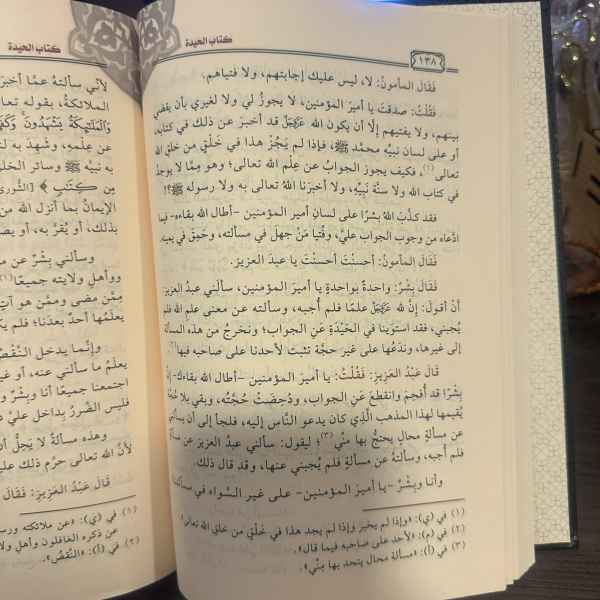 كتاب الحيدة
١٣٨
فَقَالَ المأمونُ: لا، ليس عليك إجابتهم، ولا فتياهم.
فَقُلْتُ: صدقتَ يا أميرَ المؤمنين، لا يجوزُ لي ولا لغيري بأن يقضي
بينهم، ولا يفتيهم إلَّا أن يكون الله ﷿ قد أخبرَ عن ذلك في كتابه،
أو على لسان نبيِّه محمَّد ﷺ، فإذا لم يَجُزْ هذا في خَلْقٍ من خلق الله
تعالى(١)، فكيف يجوز الجوابُ عن عِلْم الله تعالى؛ وهو مِمَّا لا يوجدُ
في كتاب الله ولا سنَّة نَبِيِّهِ، ولا أخبرَنَا اللهُ تعالى به ولا رسوله ﷺ؟!
فقد كذَّبَ اللهُ بِشْرًا على لسانِ أمير المؤمنين -أطال الله بقاءه- فيما
ادَّعاه من وجوب الجواب عليَّ، وفُتيا مَنْ جهلَ في مسألته، وحَمِقَ في يمينه.
فَقَالَ المأمونُ: أحسنْتَ أحسنْتَ يا عبدَ العزيز.
فَقَالَ بِشْرٌ: واحدةٌ بواحدةٍ يا أميرَ المؤمنين، سألني عبدُ العزيز:
أنْ أقولَ: إنَّ لله ﷿ علمًا فلم أُجبه، وسألته عن معنى علم الله فلم
يُجبني، فقد استوَينا في الحَيْدَةِ عَنِ الجواب؛ ونخرجُ من هذه المسألة
إلى غيرها، وندَعُها على غير حجَّة تثبت لأحدنا على صاحبه فيها(٢)
قَالَ عَبْدُ العَزِيزِ: فَقُلْتُ: يا أميرَ المؤمنين -أطال الله بقاءك- إنَّ
بِشْرًا قد أُفحِمَ وانقطعَ عَنِ الجواب، ودُحِضَتْ حُجَّتُه، وبقي بلا حُجَّة
يُقيمها لهذا المذهب الَّذي كان يدعو النَّاس إليه، فلجأ إلى أن يسألني
عن مسألةٍ محالٍ يحتجُّ بها منِّي(٣)؛ ليقول: سألني عبدُ العزيز عن مسألة
فلم أجبه، وسألتهُ عن مسألةٍ فلم يُجبني عنها، وقد قال ذلك.
وأنا وبِشْرٌ -يا أميرَ المؤمنين- على غير السَّواء في مسألتنا
(١) في (ي): «وإذا لم يخبر وإذا لم يجد هذا في خَلْقٍ من خلق الله تعالى».
(٢) في (م): «لأحد على صاحبه فيما قال».
(٣) في (أ): «مسألة محال يتحد بها مِنِّي».
كتاب الحيدة
لأنِّي سألتهُ عمَّا أخبرَ
الملائكةُ، بقوله تعا
عن عِلْمِهِ، وشَهِدَ به ل
به نبيَّه ﷺ وسائر الخل
مِن كِتَٰبٍ ﴾ [الشُّورى
الإيمانُ بما أنزل الله من
بذلك، أو يُقرَّ به، أو يص
وسألني بِشْرٌ عن م
ووأهلِ ولايته جميعًا(١)
مِمَّن مضى وممَّن هو آتٍ
يعلَمُها أحدٌ بعدَنا؛ فلم يك
وإنَّما يدخل النَّقْصُ
يعلَمُ ما سألني عنه، أو غي
اجتمعنا جميعًا أنا وبِشْرٌ و
فليس الضَّررُ بداخل عليَّ د
وهذه مسألةٌ لا يَحِلُّ أن
لأنَّ الله تعالى حرَّم ذلك علي
قَالَ عَبْدُ العَزِيزِ: فَقَالَ
(١) في (ي): «عن ملائكته ورسـ
عن ذكره الغافلون وأهلِ ولا
(٢) في (أ): «النَّقصُ».